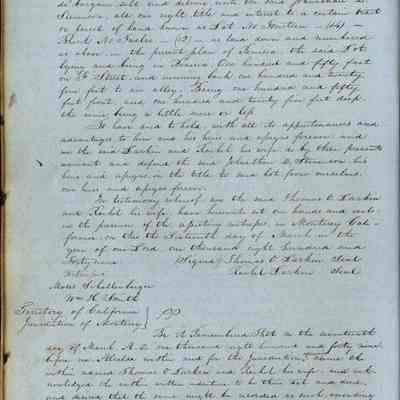 do bargain sell and deliver unto the said Johnathan D.
Stevenson, all our right title and interest to a certain tract
or parcel of Land known as Lot No fourteen (14)
Block No Twelve (12) as laid down and numbered
as above in the present plan of Benicia, the said Lot
lying and being in Benicia One hundred and fifty feet
on Street and running back one hundred and twenty
five feet to an alley. Being one hundred and fifty
feet front, and one hundred and twenty five feet deep
the same being a little more or less
To have and to hold, with all its appurtenances and
advantages to him and his heirs and assigns forever and
we the said Larkin and Rachel his wife do by these presents
warrant and defend the said Johnathan D. Stevenson his
heirs and assigns, in the title to said lot from ourselves
our heirs and assigns forever.
In testimony whereof we the said Thomas O Larkin
and Rachel his wife, have hereunto set our hands and seals
in the presence of the attesting witnesses, in Monterey Cal-
ifornia on this the Sixteenth day of March in the
year of our Lord one thousand eight hundred and
forty nine Signed Thomas O Larkin Seal
Witnesses Rachel Larkin Seal
Moses Schallenberger
Wm H. Smith
Territory of California
Jurisdiction of Monterey
Be it Remembered That on the
day of March A.D. one thousand eight hundred and forty nine
before me Alcalde within and for the Jurisdiction came the
within named Thomas O Larkin and Rachel his wife, and ack-
nowledged the within written indenture to be their act and deed,
and desired that the same might be recorded as such, according